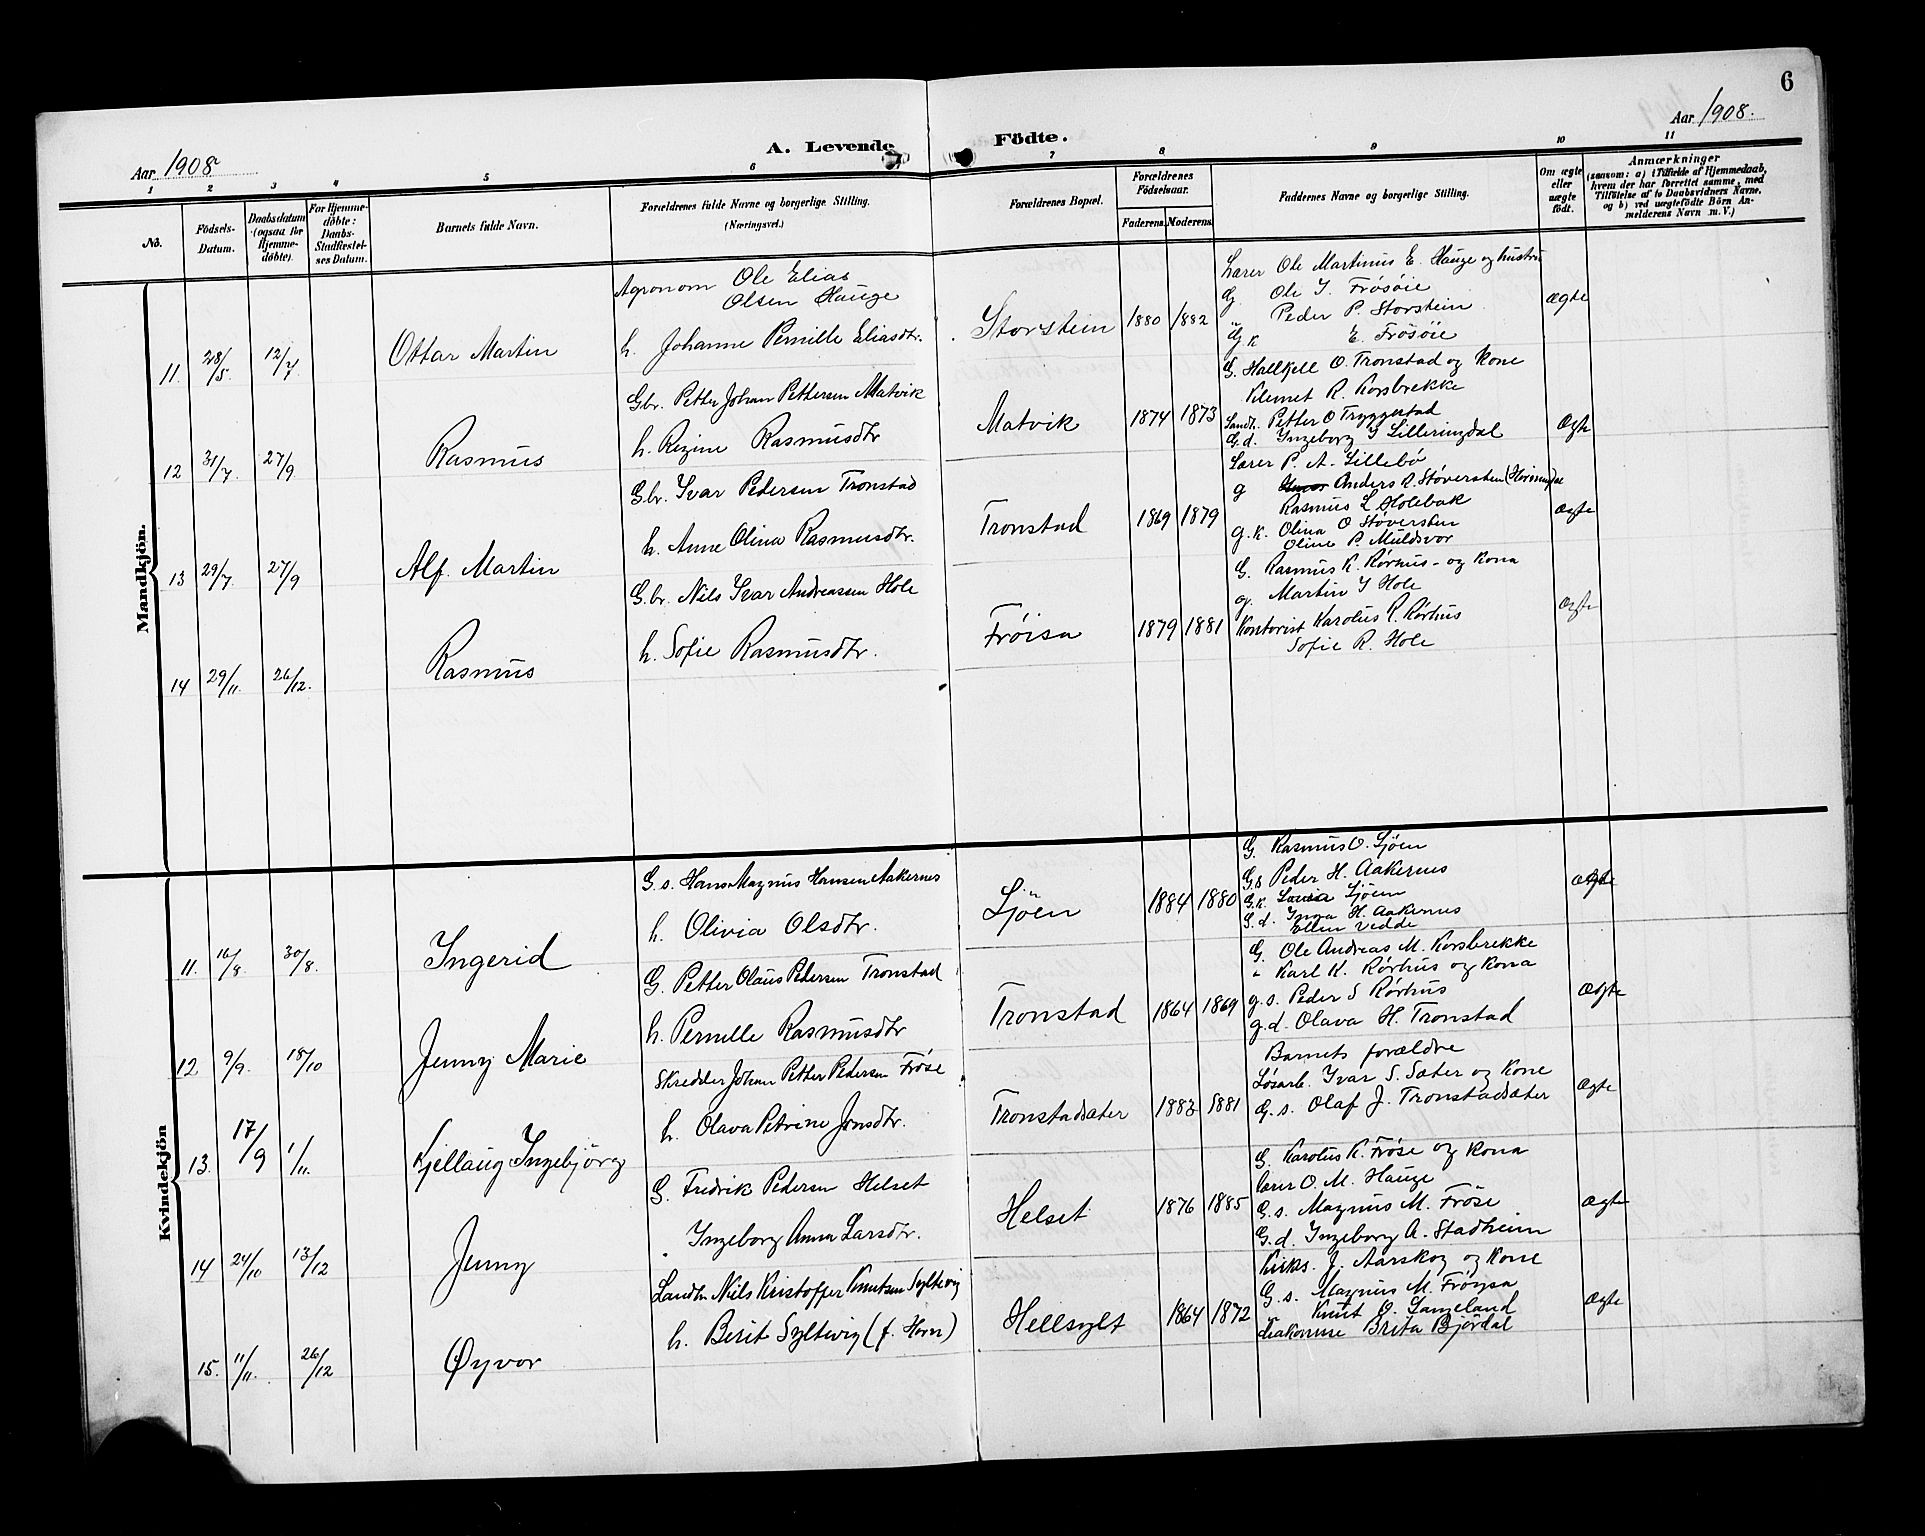 6
Aar 1908
A. Levende
Födte.
Aar 1908.
1 2 3 4 5 6 7 8 9 10 11
No.
Födsels-
Datum.
Daabsdatum
(ogsaa for
Hjemme-
döbte).
For Hjemme-
döbte:
Daabs-
Stadfæstel-
ses Datum.
Barnets fulde Navn.
Forældrenes fulde Navne og borgerlige Stilling.
(Næringsvei.)
Forældrenes Bopæl.
Forældrenes
Födselsaar.
Faderens. Moderens.
Faddernes Navne og borgerlige Stilling.
Om ægte
eller
uægte
födt.
Anmærkninger
(saasom: a) i Tilfælde af Hjemmedaab,
hvem der har forrettet samme, med
Tilföielse af to Daabsvidners Navne,
og b) ved uægtefödte Börn An-
melderens Navn m. V.)
Mandkjön.
11. 28/5. 12/7 Ottar Martin
Agronom Ole Elias
Olsen Hauge
h. Johanne Pernille Eliasdtr.
Storstein 1880 1882
Lærer Ole Martinus E. Hauge og hustru
G. Ole I. Frøsøie
Peder P. Storstein
Gk E. Frøsøie
ægte
12 31/7. 27/9. Rasmus
Gbr. Petter Johan Pettersen Matvik
h. Regine Rasmusdtr
Matvik 1874 1873
G. Hallkjell O. Tronstad og kone
Klemet R. Korsbrekke
Landh. Petter O Tryggestad
G.d. Ingeborg I Lilleringdal
Ægte
13 29/7. 27/9 Alf Martin
G.br. Ivar Pedersen Tronstad
h. Anne Olina Rasmusdtr.
Tronstad 1869 1879
Lærer P. A. Lillebø
g Anders R. Støversten
Rasmus L Holebak
g.k. Olina O Støversten
Oline P. Muldsvor
ægte
14 29/11. 26/12. Rasmus
G.br. Nils Ivar Andreassen Hole
h. Sofie Rasmusdtr.
Frøisa 1879 1881
G. Rasmus K. Rørhus - og Kona
g. Martin I Hole
Kontorist Karolus R. Rørhus
Sofie R. Hole
ægte
Kvindekjön
11. 16/8. 30/8. Ingerid
G.s. Hans Magnus Hansen Aakernes
h. Olivia Olsdtr.
Ljöen 1884 1880
G. Rasmus O. Ljöen
G.s Peder H. Aakernes
G.k. Lovisa Ljöen
G.d. Inga H. Aakernes
Ellen Vedde
ægte
12 9/9. 18/10 Jenny Marie
G. Petter Olaus Pedersen Tronstad
h. Pernille Rasmusdtr
Tronstad 1864 1869
G. Ole Andreas M. Korsbrekke
" Karl K. Rørhus og Kona
g.s. Peder S Rørhus
g.d. Olava H. Tronstad
ægte
13. 17/9 1/11. Kjellaug Ingebjörg
Skredder Johan Petter Pedersen Frøse
h. Olava Petrine Jonsdtr.
Tronstadsæter 1883 1881
Barnets forældre
Løsarb. Ivar S. Sæter og Kone
G.s. Olaf J. Tronstadsæter
Ægte
14 24/10 13/12 Jenny
G. Fredrik Pedersen Helset
Ingeborg Anna Larsdtr.
Helset 1876 1885
G. Karolus K. Frøse og Kona
lærer O. M. Hauge
G.s. Magnus M. Frøse
G.d. Ingeborg A. Stadheim
ægte
15. 11/11. 26/12 Øyvor
Landh Nils Kristoffer Knutsen Syltevig
h. Berit Syltevig (f. Horn)
Hellsylt 1864 1872
Kirks. J. Aarskog og Kone
G.s. Magnus M. Frøysa
Knut O. Langeland
diakonisse Brita Bjørdal
ægte